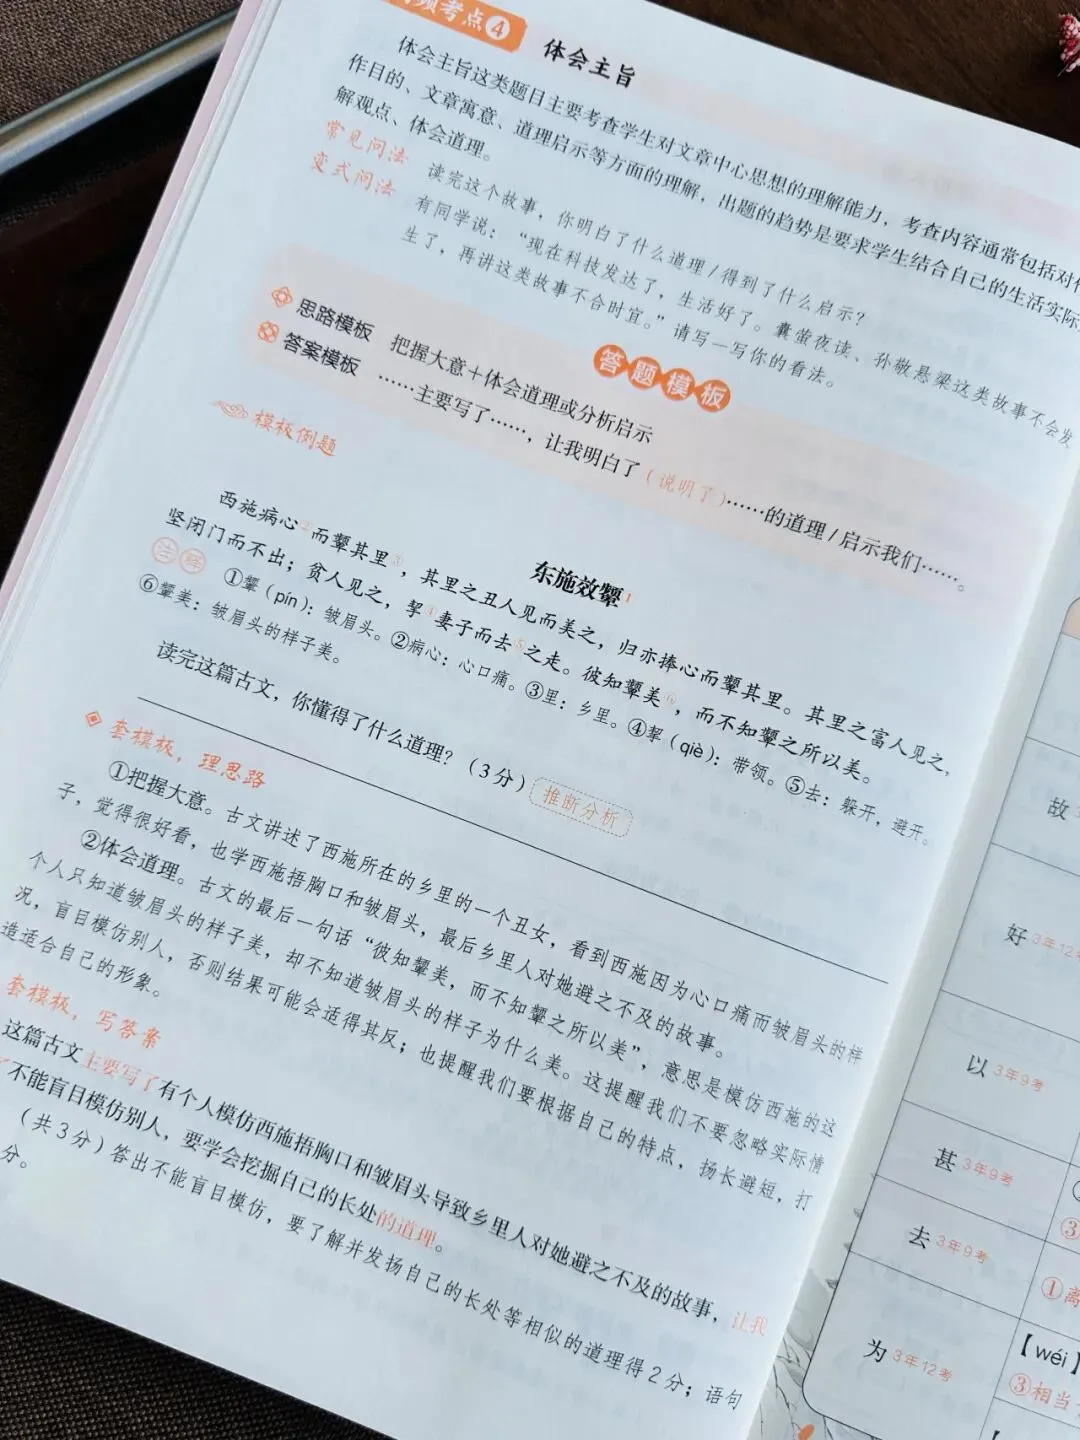 频考点4 体会主旨
体会主旨这类题目主要考查学生对文章中心思想的理解能力，考查内容通常包括对作
作目的、文章寓意、道理启示等方面的理解，出题的趋势是要求学生结合自己的生活实际
解观点、体会道理。
常见问法 读完这个故事，你明白了什么道理/得到了什么启示？
变式问法 有同学说：“现在科技发达了，生活好了。囊萤夜读、孙敬悬梁这类故事不会发
生了，再讲这类故事不合时宜。”请写一写你的看法。
答题模板
思路模板 把握大意＋体会道理或分析启示
答案模板 ……主要写了……，让我明白了（说明了）……的道理/启示我们……。
模板例题
东施效颦①
西施病心②而颦其里③，其里之丑人见而美之，归亦捧心而颦其里。其里之富人见之，
坚闭门而不出；贫人见之，挈④妻子而去⑤之走。彼知颦美⑥，而不知颦之所以美。
注释 ①颦（pín）：皱眉头。②病心：心口痛。③里：乡里。④挈（qiè）：带领。⑤去：躲开，避开。
⑥颦美：皱眉头的样子美。
读完这篇古文，你懂得了什么道理？（3分） 推断分析
套模板，理思路
①把握大意。古文讲述了西施所在的乡里的一个丑女，看到西施因为心口痛而皱眉头的样
子，觉得很好看，也学西施捂胸口和皱眉头，最后乡里人对她避之不及的故事。
②体会道理。古文的最后一句话“彼知颦美，而不知颦之所以美”，意思是模仿西施的这
个人只知道皱眉头的样子美，却不知道皱眉头的样子为什么美。这提醒我们不要忽略实际情
况，盲目模仿别人，否则结果可能会适得其反；也提醒我们要根据自己的特点，扬长避短，打
造适合自己的形象。
套模板，写答案
这篇古文主要写了有个人模仿西施捂胸口和皱眉头导致乡里人对她避之不及的故事，让我
了不能盲目模仿别人，要学会挖掘自己的长处的道理。
（共3分）答出不能盲目模仿，要了解并发扬自己的长处等相似的道理得2分；语句
分。
故
好 3年12考
以 3年9考
甚 3年9考
③
去 3年9考
①离
为 3年12考
【wéi】
③相当